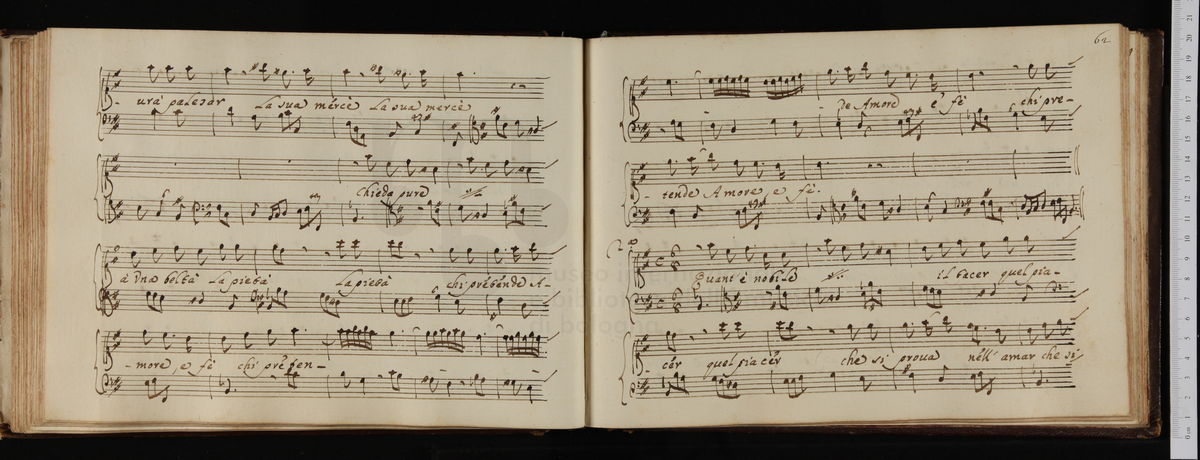 - urà palesar La sua mercè La sua mercè
Chieda pure
à Una beltà La pietà La pietà chi pretende A-
- more, e fè chi preten-
62
- De Amore e fè chi pre-
tende Amore e fè.
2.
Quant'è nobile il piacer quel pia-
cer quel piacer che si prova nell'amar che si
museo
biblioteca
di bologna